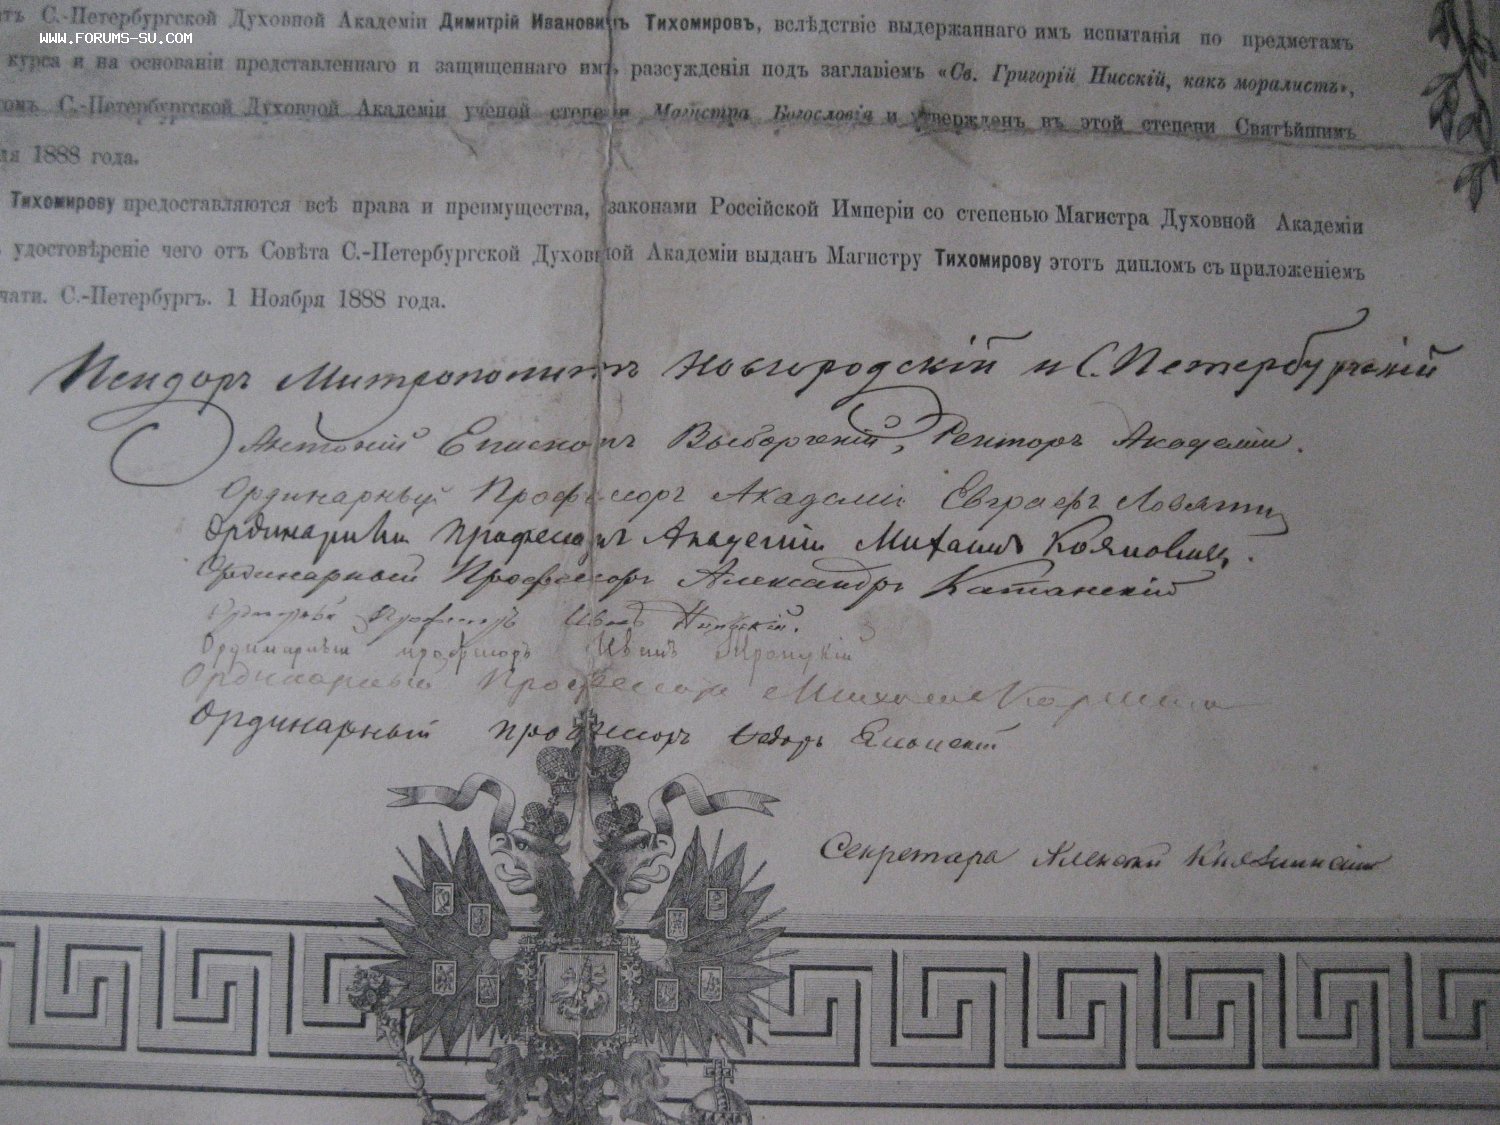 атъ С.-Петербургской Духовной Академіи Димитрій Ивановичъ Тихомировъ, вслѣдствіе выдержаннаго имъ испытанія по предметамъ
WWW.FORUMS-SU.COM
курса и на основаніи представленнаго и защищеннаго имъ разсужденія подъ заглавіемъ «Св. Григорій Нисскій, какъ моралистъ»,
томъ С.-Петербургской Духовной Академіи ученой степени Магистра Богословія и утвержденъ въ этой степени Святѣйшимъ
ля 1888 года.
Тихомирову предоставляются всѣ права и преимущества, законами Россійской Имперіи со степенью Магистра Духовной Академіи
удостовѣреніе чего отъ Совѣта С.-Петербургской Духовной Академіи выданъ Магистру Тихомирову этотъ дипломъ съ приложеніемъ
чати. С.-Петербургъ. 1 Ноября 1888 года.
Исидоръ Митрополитъ Новгородскій и С. Петербургскій
Антоній Епископъ Выборгскій, Ректоръ Академіи.
Ординарный Профессоръ Академіи Евграфъ Ловягин
Ординарный профессоръ Академіи Михаилъ Кояловичъ.
Ординарный Профессоръ Александръ Катанскій
Профессоръ Иванъ
Ординарный профессоръ Иванъ Троицкій
Ординарный Профессоръ Михаилъ
Ординарный профессоръ Ѳедоръ Елеонскій
Секретарь Алексѣй